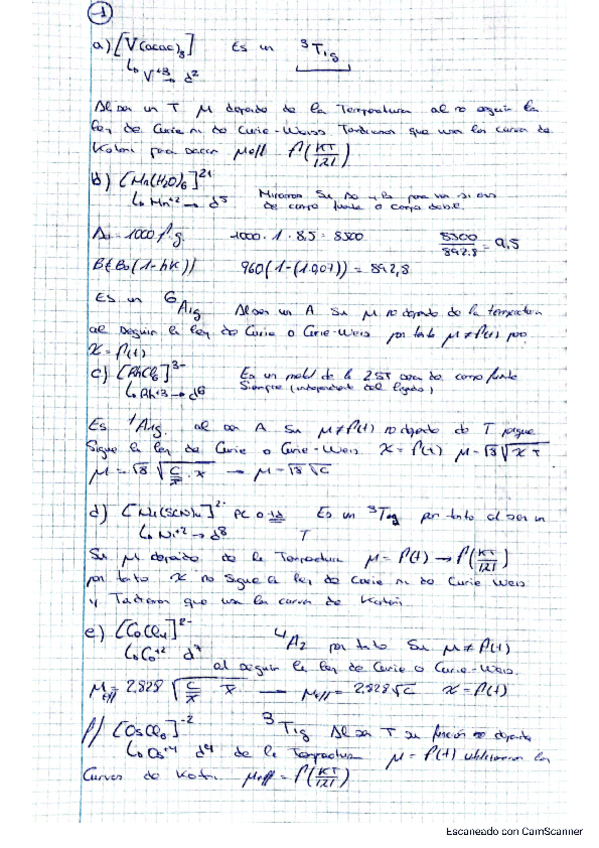 -1
a) [V(acac)3] Es un ³T1g
↳ V+3 → d²
Al ser un T μ depende de la Temperatura al no seguir la
ley de Curie ni de Curie-Weiss. Tendremos que usar las curvas de
Kotani para sacar μeff f(KT/|λ|)
b) [Mn(H2O)6]2+ Miramos su Δo y la para ver si es
↳ Mn+2 → d5 de campo fuerte o campo debil.
Δo = 1000 f·g. 1000·1·8,5 = 8500 8500/892,8 = 9,5
B(Bo(1-hK)) 960(1-(1·0,07)) = 892,8
Es un ⁶A1g Al ser un A su μ no depende de la temperatura
al seguir la ley de Curie o Curie-Weis por tanto μ ≠ f(t) pero
χ = f(t)
c) [RhCl6]3- Es un metal de la 2ST campo fuerte
↳ Rh+3 → d6 Siempre (independiente del ligando)
Es ¹A1g. al ser A su μ ≠ f(t) no depende de T porque
Sigue la ley de Curie o Curie-Weis. χ = f(t) μ = √8 √χT
μ = √8 √(C/T · T) → μ = √8 √C
d) [Ni(SCN)4]2- PC o Td Es un ³T1g por tanto al ser un
↳ Ni+2 → d8 T
Su μ depende de la Temperatura μ = f(t) → f(KT/|λ|)
por tanto χ no sigue la ley de Curie ni de Curie Weis
y Tendremos que usar las curvas de Kotani.
e) [CoCl4]2- ⁴A2 por tanto Su μ ≠ f(t)
↳ Co+2 d7 al seguir la ley de Curie o Curie-Weis.
μeff = 2,828 √(C/T · T) → μeff = 2,828 √C χ = f(t)
f) [OsCl6]-2 ³T1g Al ser T su función depende
↳ Os+4 d4 de la Temperatura μ = f(t) utilizaremos las
Curvas de Kotani μeff = f(KT/|λ|)
Escaneado con CamScanner